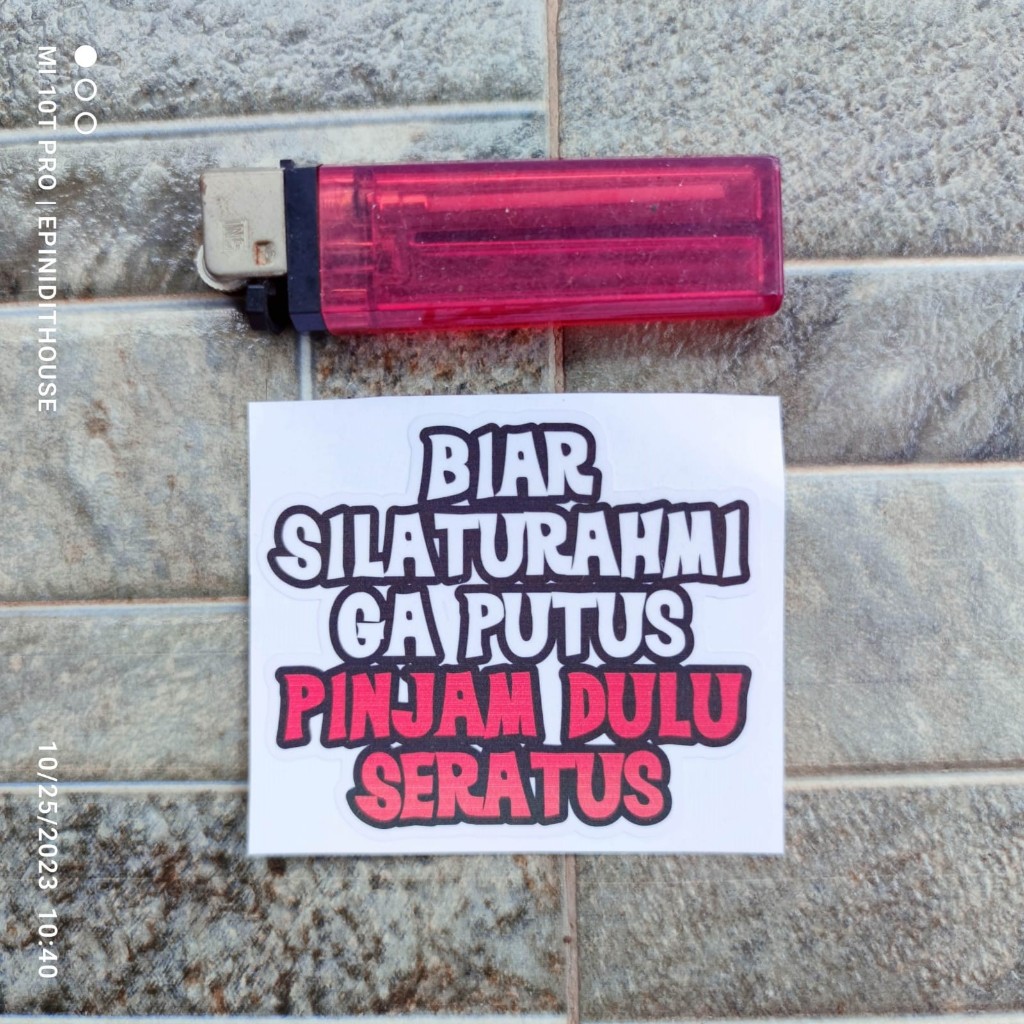 BIAR
SILATURAHMI
GA PUTUS
PINJAM DULU
SERATUS
MI 10T PRO | EPINIDITHOUSE
10/25/2023 10:40